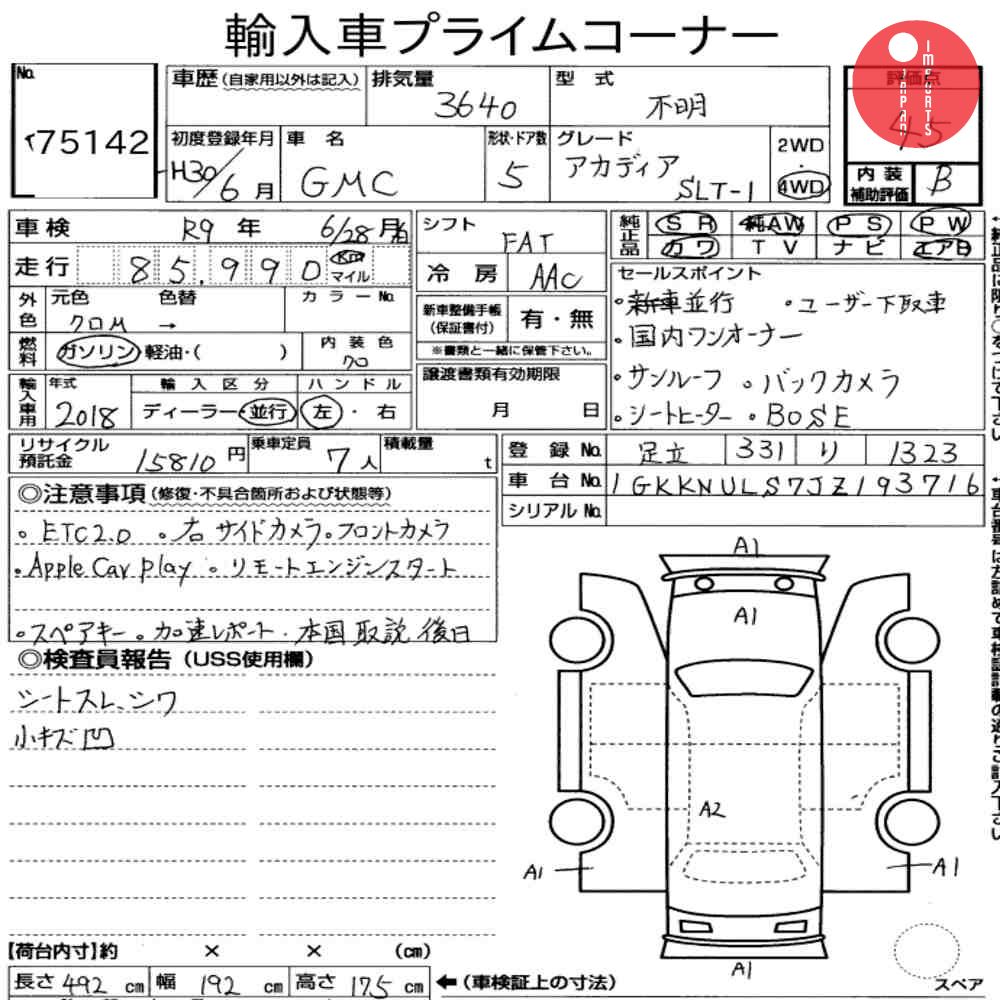 輸入車プライムコーナー
JAPAN IMPORTS
No. 75142
車歴 (自家用以外は記入)
排気量 3640
型式 不明
評価点 4.5
初度登録年月 H30/6月
車名 GMC
形状・ドア数 5
グレード アカディア SLT-1
2WD・4WD
内装補助評価 B
車検 R9年 6/28月
走行 85,990 Km マイル
シフト FAT
冷房 AAC
純正品 SR 純AW PS PW
カワ TV ナビ エアB
外色 元色 クロM 色替 → カラーNo.
燃料 ガソリン 軽油・( )
内装色 クロ
新車整備手帳(保証書付) 有・無
※書類と一緒に保管下さい。
セールスポイント
・新車並行 ・ユーザー下取車
・国内ワンオーナー
・サンルーフ ・バックカメラ
・シートヒーター ・BOSE
輸入車用 年式 2018
輸入区分 ディーラー・並行
ハンドル 左・右
譲渡書類有効期限 月 日
リサイクル預託金 15810円
乗車定員 7人
積載量 t
登録No. 足立 331 り 1323
車台No. 1GKKNULS7JZ193716
シリアルNo.
◎注意事項(修復・不具合箇所および状態等)
・ETC2.0 ・右サイドカメラ・フロントカメラ
・Apple Car play ・リモートエンジンスタート
・スペアキー ・加速レポート・本国取説 後日
◎検査員報告(USS使用欄)
シートスレ、シワ
小キズ凹
A1
A1
A2
A1
A1
A1
スペア
【荷台内寸】約 × × (cm)
長さ 492 cm 幅 192 cm 高さ 175 cm ←(車検証上の寸法)